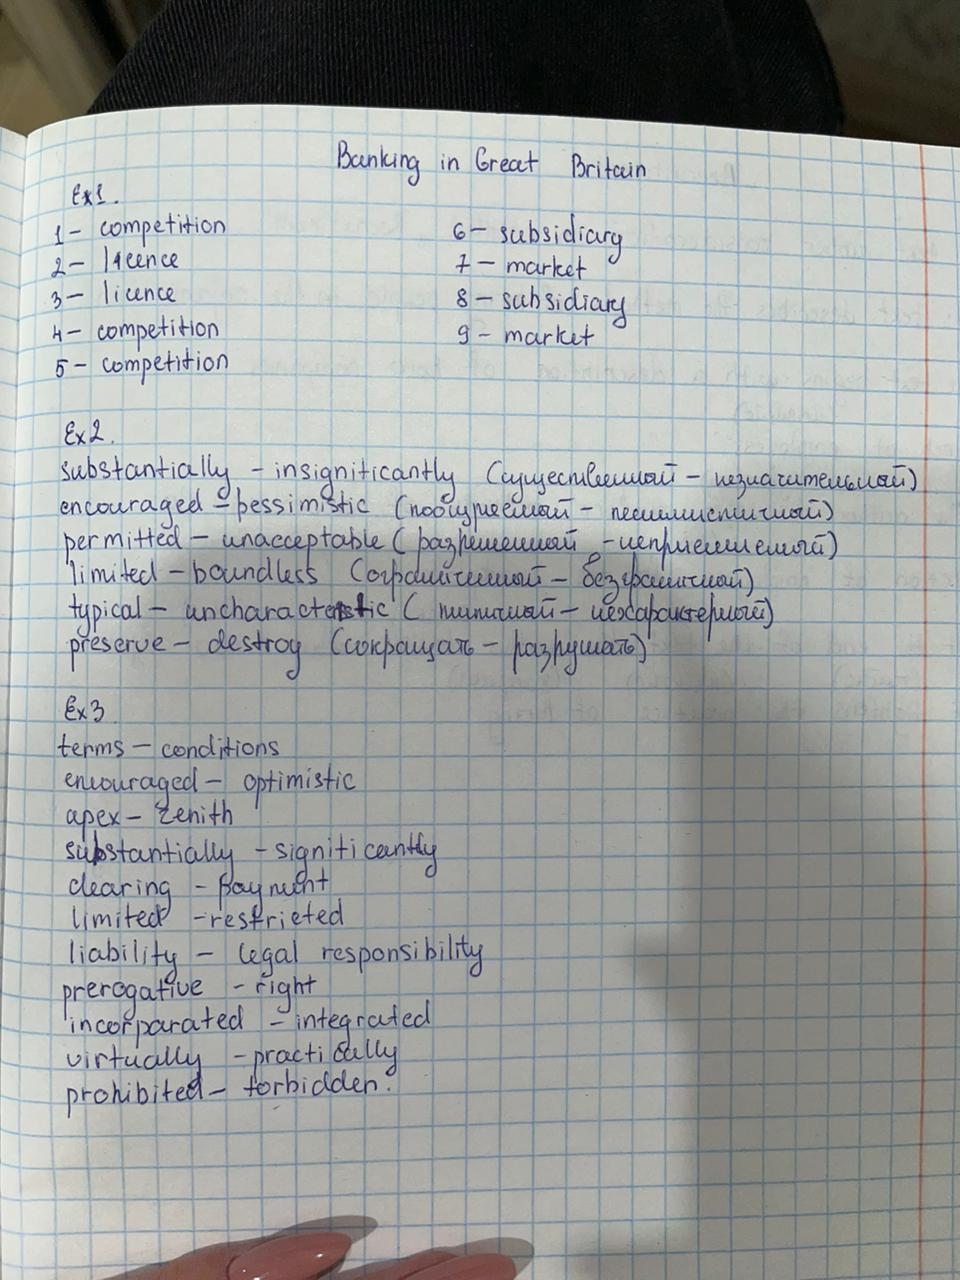 Banking in Great Britain
Ex1.
1 – competition
2 – licence
3 – licence
4 – competition
5 – competition
6 – subsidiary
7 – market
8 – subsidiary
9 – market
Ex2.
substantially – insignificantly (существенный – незначительный)
encouraged – pessimistic (поощряемый – пессимистичный)
permitted – unacceptable (разрешенный – неприемлемый)
limited – boundless (ограниченный – безграничный)
typical – uncharacteristic (типичный – нехарактерный)
preserve – destroy (сокращать – разрушать)
Ex3
terms – conditions
encouraged – optimistic
apex – zenith
substantially – significantly
clearing – payment
limited – restricted
liability – legal responsibility
prerogative – right
incorparated – integrated
virtually – practically
prohibited – forbidden.